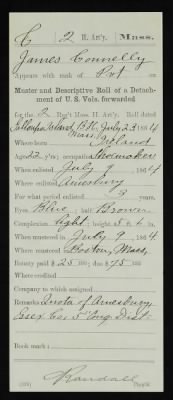 C | 2 H. Art'y. | Mass.
James Connelly
Appears with rank of Pvt. on
Muster and Descriptive Roll of a Detach-
ment of U. S. Vols. forwarded
for the 2 Reg't Mass. H. Art'y. Roll dated
Galloups Island, B.H., July 23, 1864
Mass.
Where born Ireland
Age 22 y'rs; occupation Shoemaker
When enlisted July 9, 1864
Where enlisted Amesbury
For what period enlisted 3 years.
Eyes Blue; hair Brown
Complexion Light; height 5 ft. 4 in.
When mustered in July 9, 1864
Where mustered in Boston, Mass.
Bounty paid $ 25 100; due $ 75 100
Where credited
Company to which assigned
Remarks: Quota of Amesbury
Essex Co., 5" Cong. Dist.
Book mark:
Randall
Copyist.